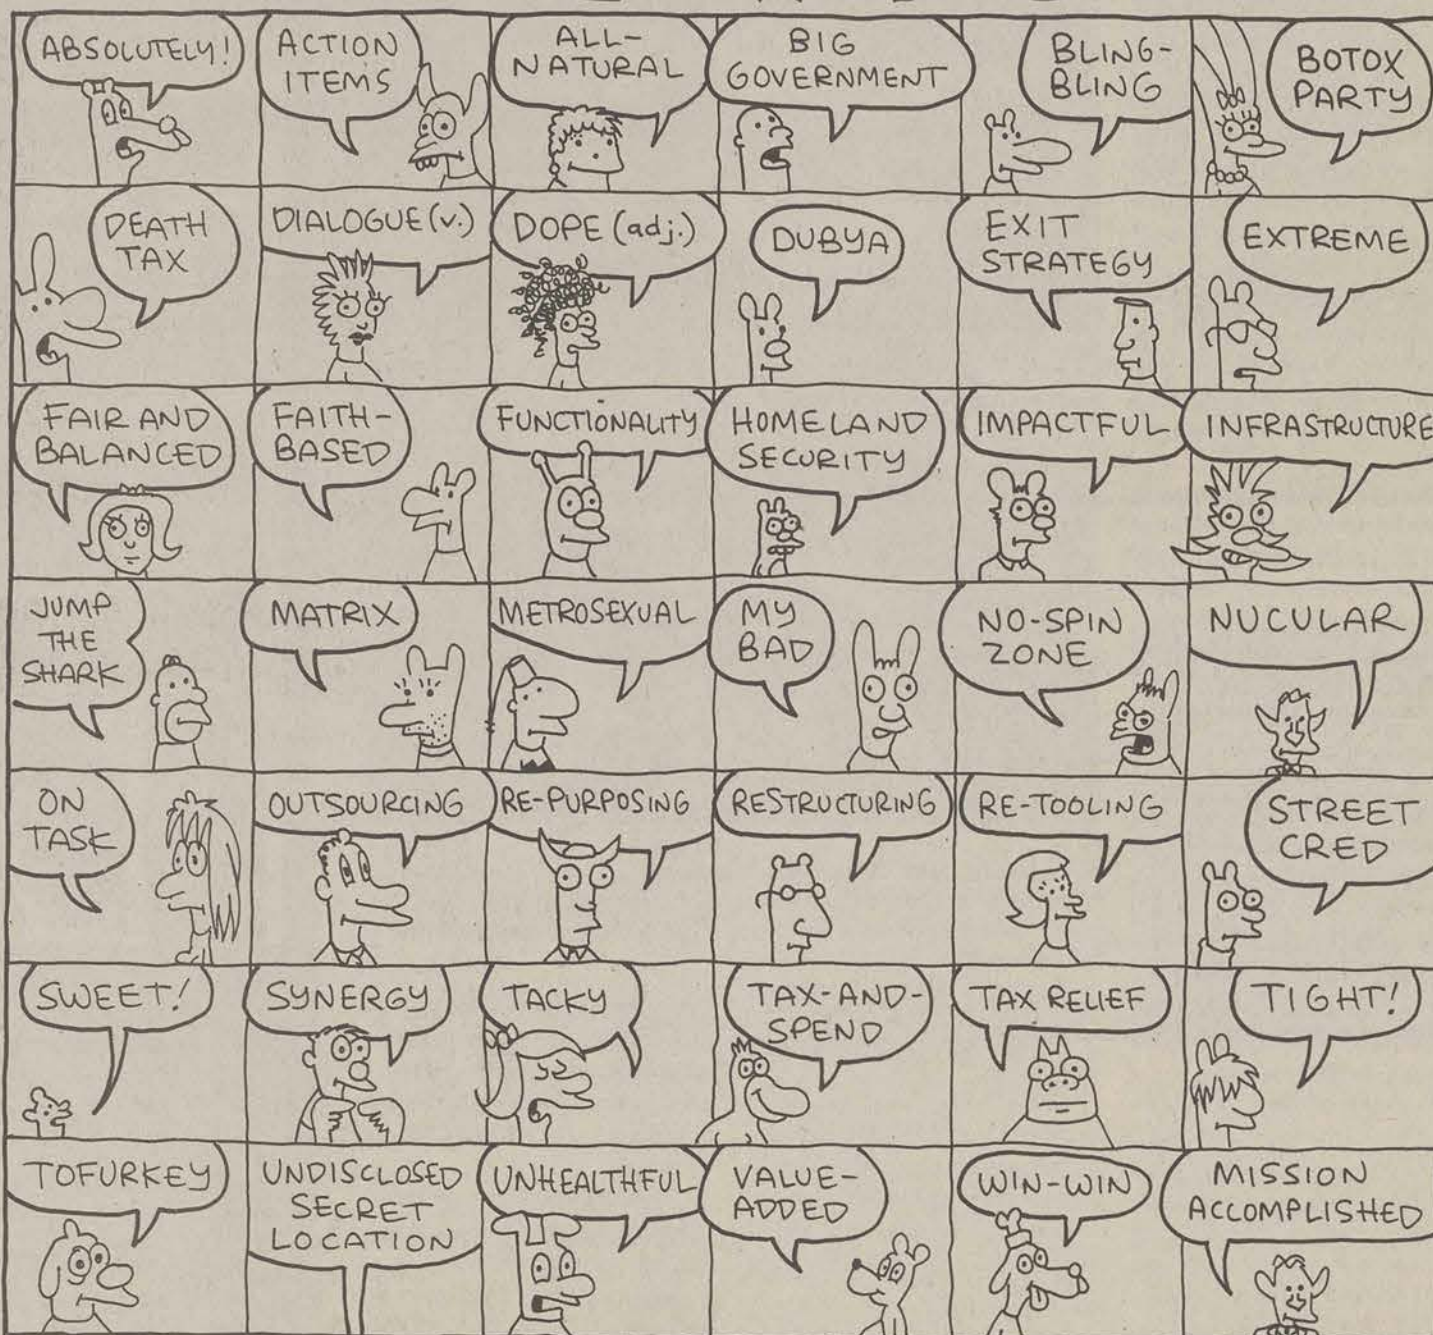 ABSOLUTELY!
ACTION
ITEMS
ALL-
NATURAL
BIG
GOVERNMENT
BLING-
BLING
BOTOX
PARTY
DEATH
TAX
DIALOGUE (v.)
DOPE (adj.)
DUBYA
EXIT
STRATEGY
EXTREME
FAIR AND
BALANCED
FAITH-
BASED
FUNCTIONALITY
HOMELAND
SECURITY
IMPACTFUL
INFRASTRUCTURE
JUMP
THE
SHARK
MATRIX
METROSEXUAL
MY
BAD
NO-SPIN
ZONE
NUCULAR
ON
TASK
OUTSOURCING
RE-PURPOSING
RESTRUCTURING
RE-TOOLING
STREET
CRED
SWEET!
SYNERGY
TACKY
TAX-AND-
SPEND
TAX RELIEF
TIGHT!
TOFURKEY
UNDISCLOSED
SECRET
LOCATION
UNHEALTHFUL
VALUE-
ADDED
WIN-WIN
MISSION
ACCOMPLISHED